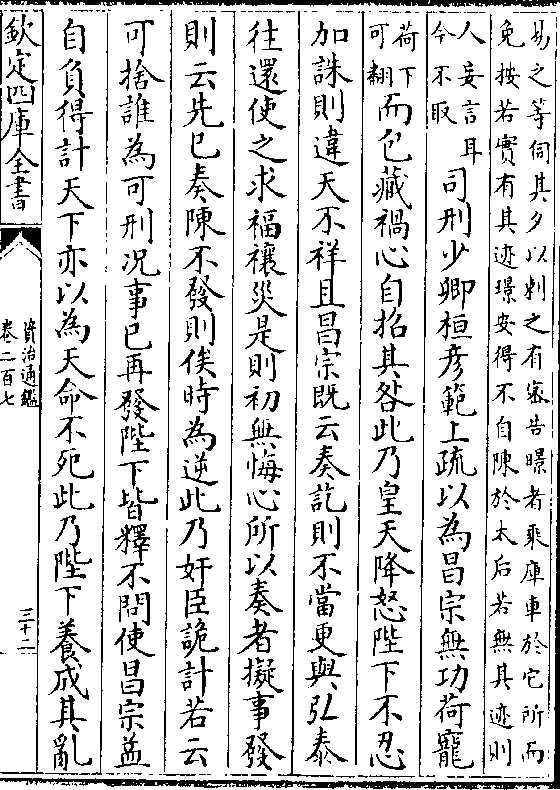 易之等伺其夕以刺之有密告暻者乘庫車於它所而
免按若實有其迹璟安得不自陳於太后若無其迹則
人妄言耳
今不取
司刑少卿桓彦範上疏以為昌宗無功荷寵
荷下
可翻
而包藏禍心自招其咎此乃皇天降怒陛下不忍
加誅則違天不祥且昌宗既云奏訖則不當更與弘泰
往還使之求福禳災是則初無悔心所以奏者擬事發
則云先已奏陳不發則俟時為逆此乃奸臣詭計若云
可捨誰為可刑况事已再發陛下皆釋不問使昌宗益
自負得計天下亦以為天命不死此乃陛下養成其亂
欽定四庫全書
資治通鑑
卷二百七
三十二